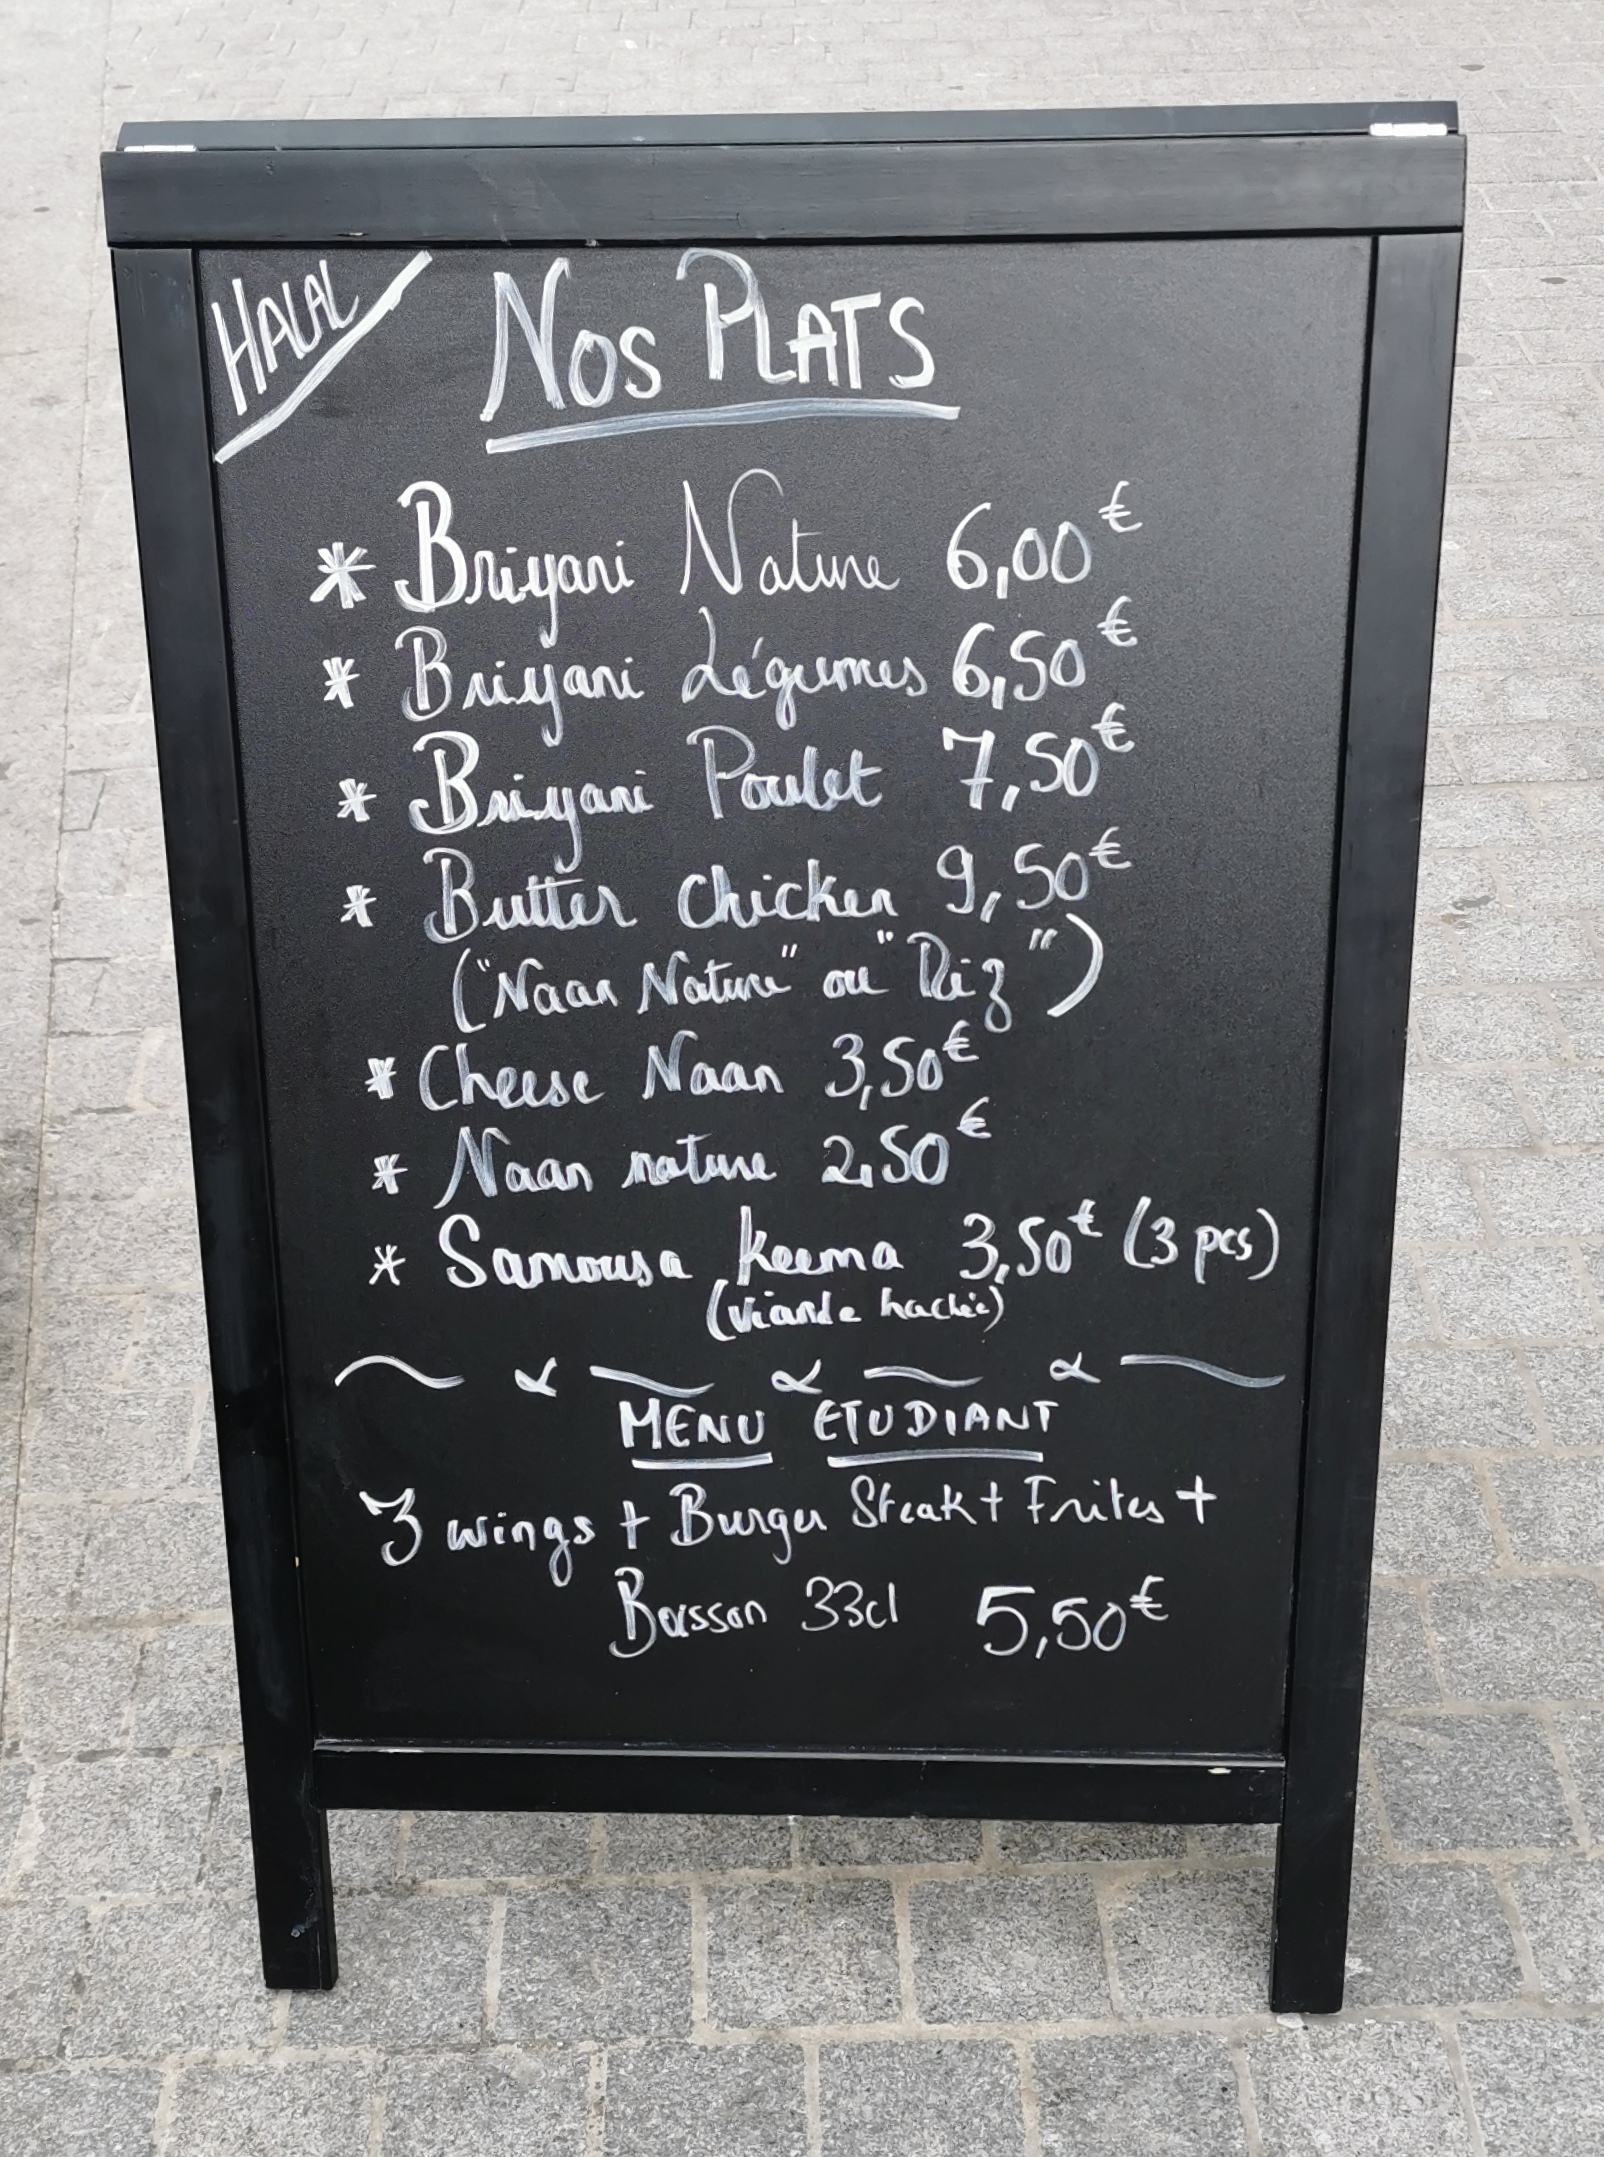 HALAL
NOS PLATS
* Briyani Nature 6,00€
* Briyani Légumes 6,50€
* Briyani Poulet 7,50€
* Butter chicken 9,50€
("Naan Nature" ou "Riz")
* Cheese Naan 3,50€
* Naan nature 2,50€
* Samousa keema 3,50€ (3 pcs)
(viande hachée)
MENU ETUDIANT
3 wings + Burger Steak + Frites +
Boisson 33cl 5,50€